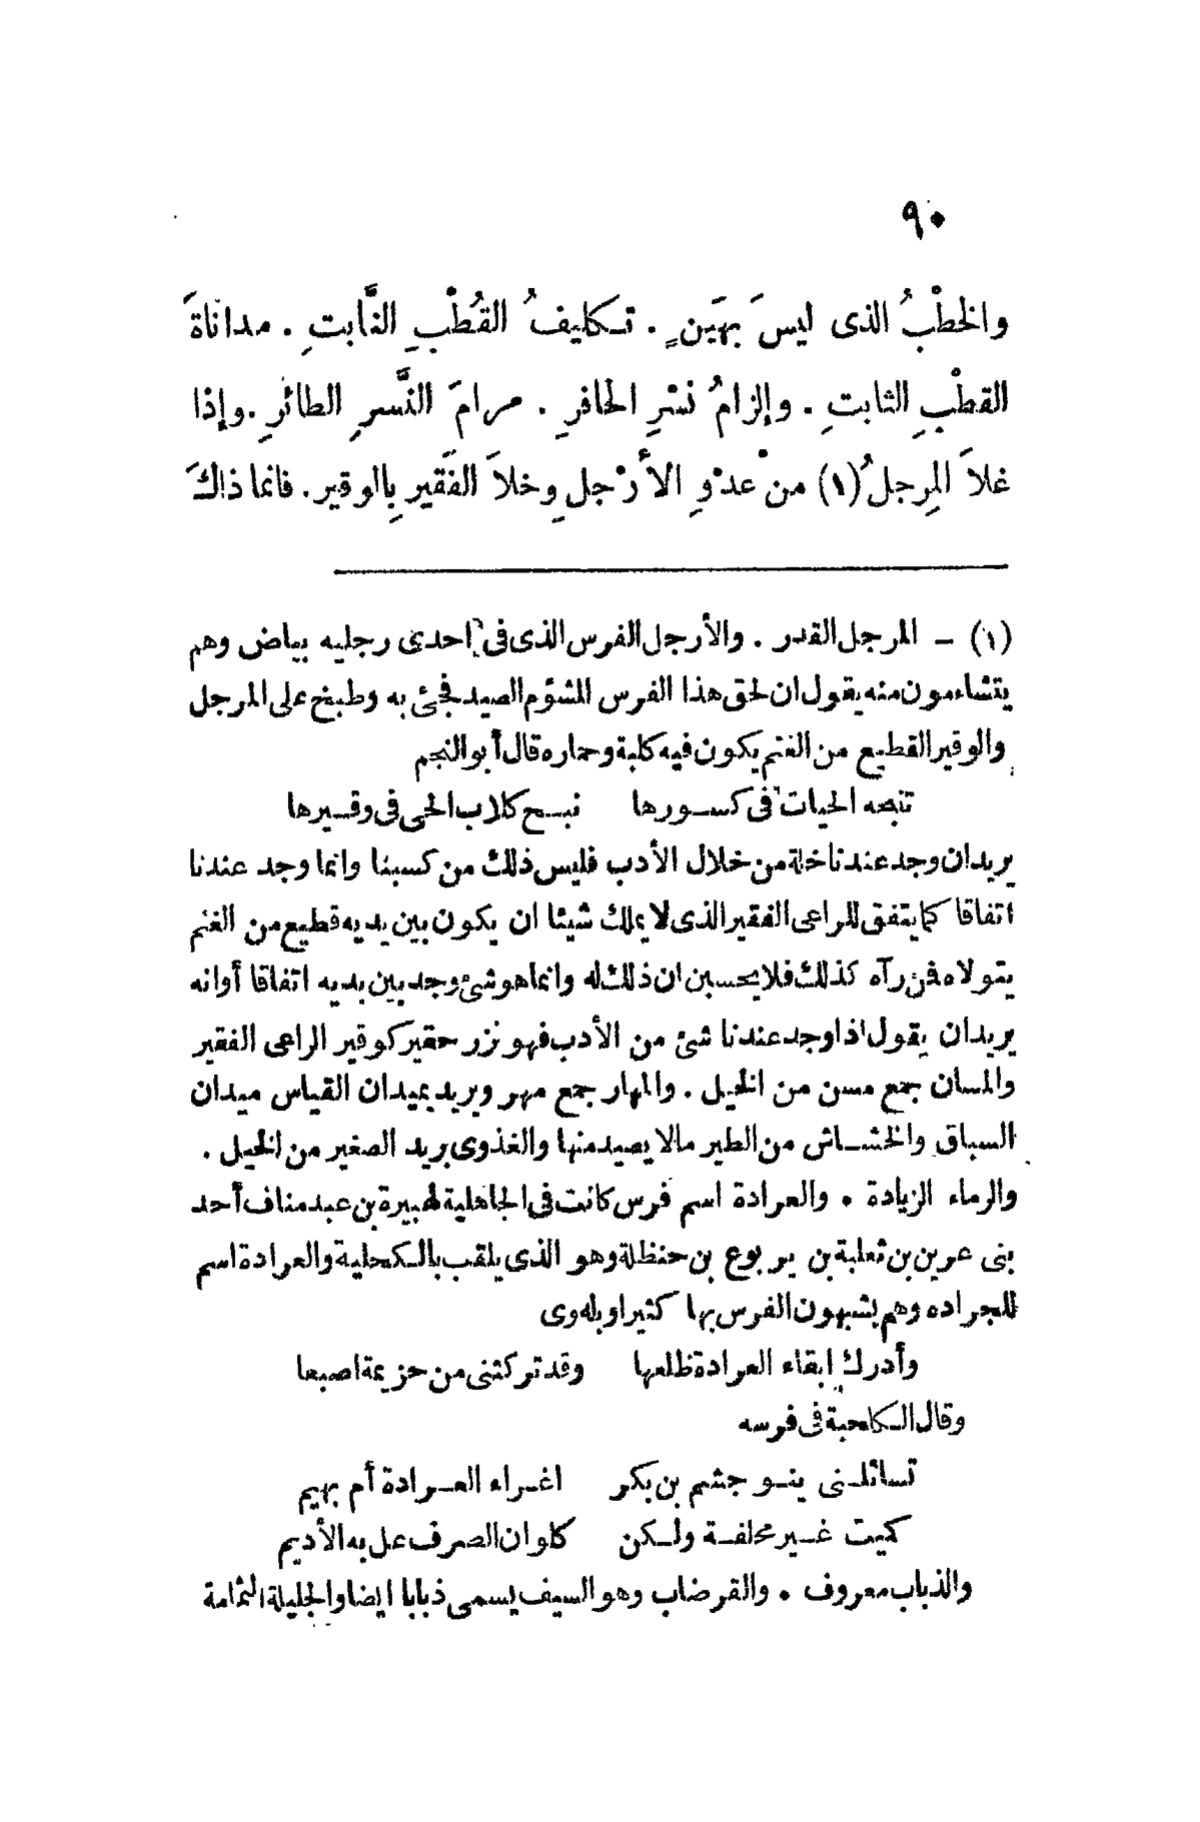 ٩٠
والخطْبُ الذى ليسَ بهَينٍ . تـكليفُ القُطْبِ النَّابتِ . مداناةَ
القطْبِ الثابتِ . وإلزامُ نسْرِ الحافرِ . مرامَ النَّسرِ الطائرِ .وإذا
غلاَ المِرجلُ (١) منْ عدْوِ الأرْجلِ وخلاَ الفَقيرِ بِالوقير. فانما ذاكَ
(١) – المرجل القدر . والأرجل الفرس الذى فى احدى رجليه بياض وهم
يتشاءمون منه يقول ان لحق هذا الفرس المشؤم الصيد فجئ به وطبخ على المرجل
والوقير القطيع من الغنم يكون فيه كلبة وحماره قال أبو النجم
تنبحه الحيات فى كســورها نبــح كلاب الحى فى وقــيرها
يريد ان وجد عندنا خلة من خلال الأدب فليس ذلك من كسبنا وانما وجد عندنا
اتفاقا كما يتفق للراعى الفقير الذى لا يملك شيئا ان يكون بين يديه قطيع من الغنم
يتولاه فمن رآه كذلك فلا يحسبن ان ذلك له وانما هو شئ وجد بين يديه اتفاقا أو انه
يريد ان يقول اذا وجد عندنا شئ من الأدب فهو نزر حقير كوقير الراعى الفقير
والمسان جمع مسن من الخيل . والمهار جمع مهر ويريد بميدان القياس ميدان
السباق والخشــاش من الطير مالا يصيد منها والغذوى يريد الصغير من الخيل .
والرماء الزيادة . والعرادة اسم فرس كانت فى الجاهلية لهبيرة بن عبد مناف أحد
بنى عرين بن ثعلبة بن يربوع بن حنظلة وهو الذى يلقب بالـكحلية والعرادة اسم
للجراده وهم يشبهون الفرس بها كثيرا وبله وى
وأدرك ابقاء العرادة ظلعها وقد تركتنى من حزيمة اصبعا
وقال الـكلحبة فى فرسه
تسائلــنى بنــو جشم بن بكر اغــراء العــرادة أم بهيم
كميت غــير محلفــة ولــكن كلوان الصرف عل به الأديم
والذباب معروف . والقرضاب وهو السيف يسمى ذبابا ايضا والجليلة الثمامة